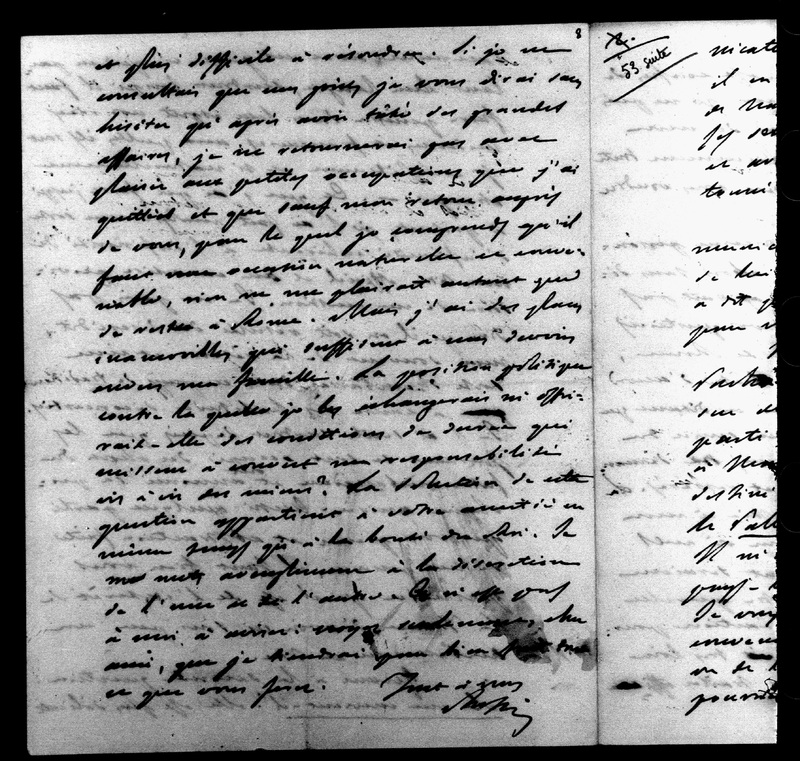 8
et plus difficile à résoudre. Si je ne
consultais que mes goûts je vous dirai sans
hésiter qu'après avoir tâté des grandes
affaires, je ne retournerai pas avec
plaisir aux petites occupations que j'ai
quittées et que sauf mon retour auprès
de vous, pour le quel je comprends qu'il
faut une occasion naturelle et conve-
nable, rien ne me plairait autant que
de rester à Rome. Mais j'ai des places
inamovibles qui suffisent à mes devoirs
envers ma famille. La position politique
contre la quelle je les échangerais m'offri-
rait-elle des conditions de durée qui
missent à couvert ma responsabilité
vis à vis des miens? La solution de cette
question appartient à votre amitié en
même temps qu'à la bonté du Roi. Je
me mets aveuglément à la discrétion
de l'une et de l'autre. Ce n'est pas
à moi à aviser: voyez seulement, cher
ami, que je tiendrai pour bien tout
ce que vous ferez. Tout à vous
Rossi
53 suite
il en
de
et
de lui
a dit
pour
sur
parti
à
destiné
le
Il n'
ou de